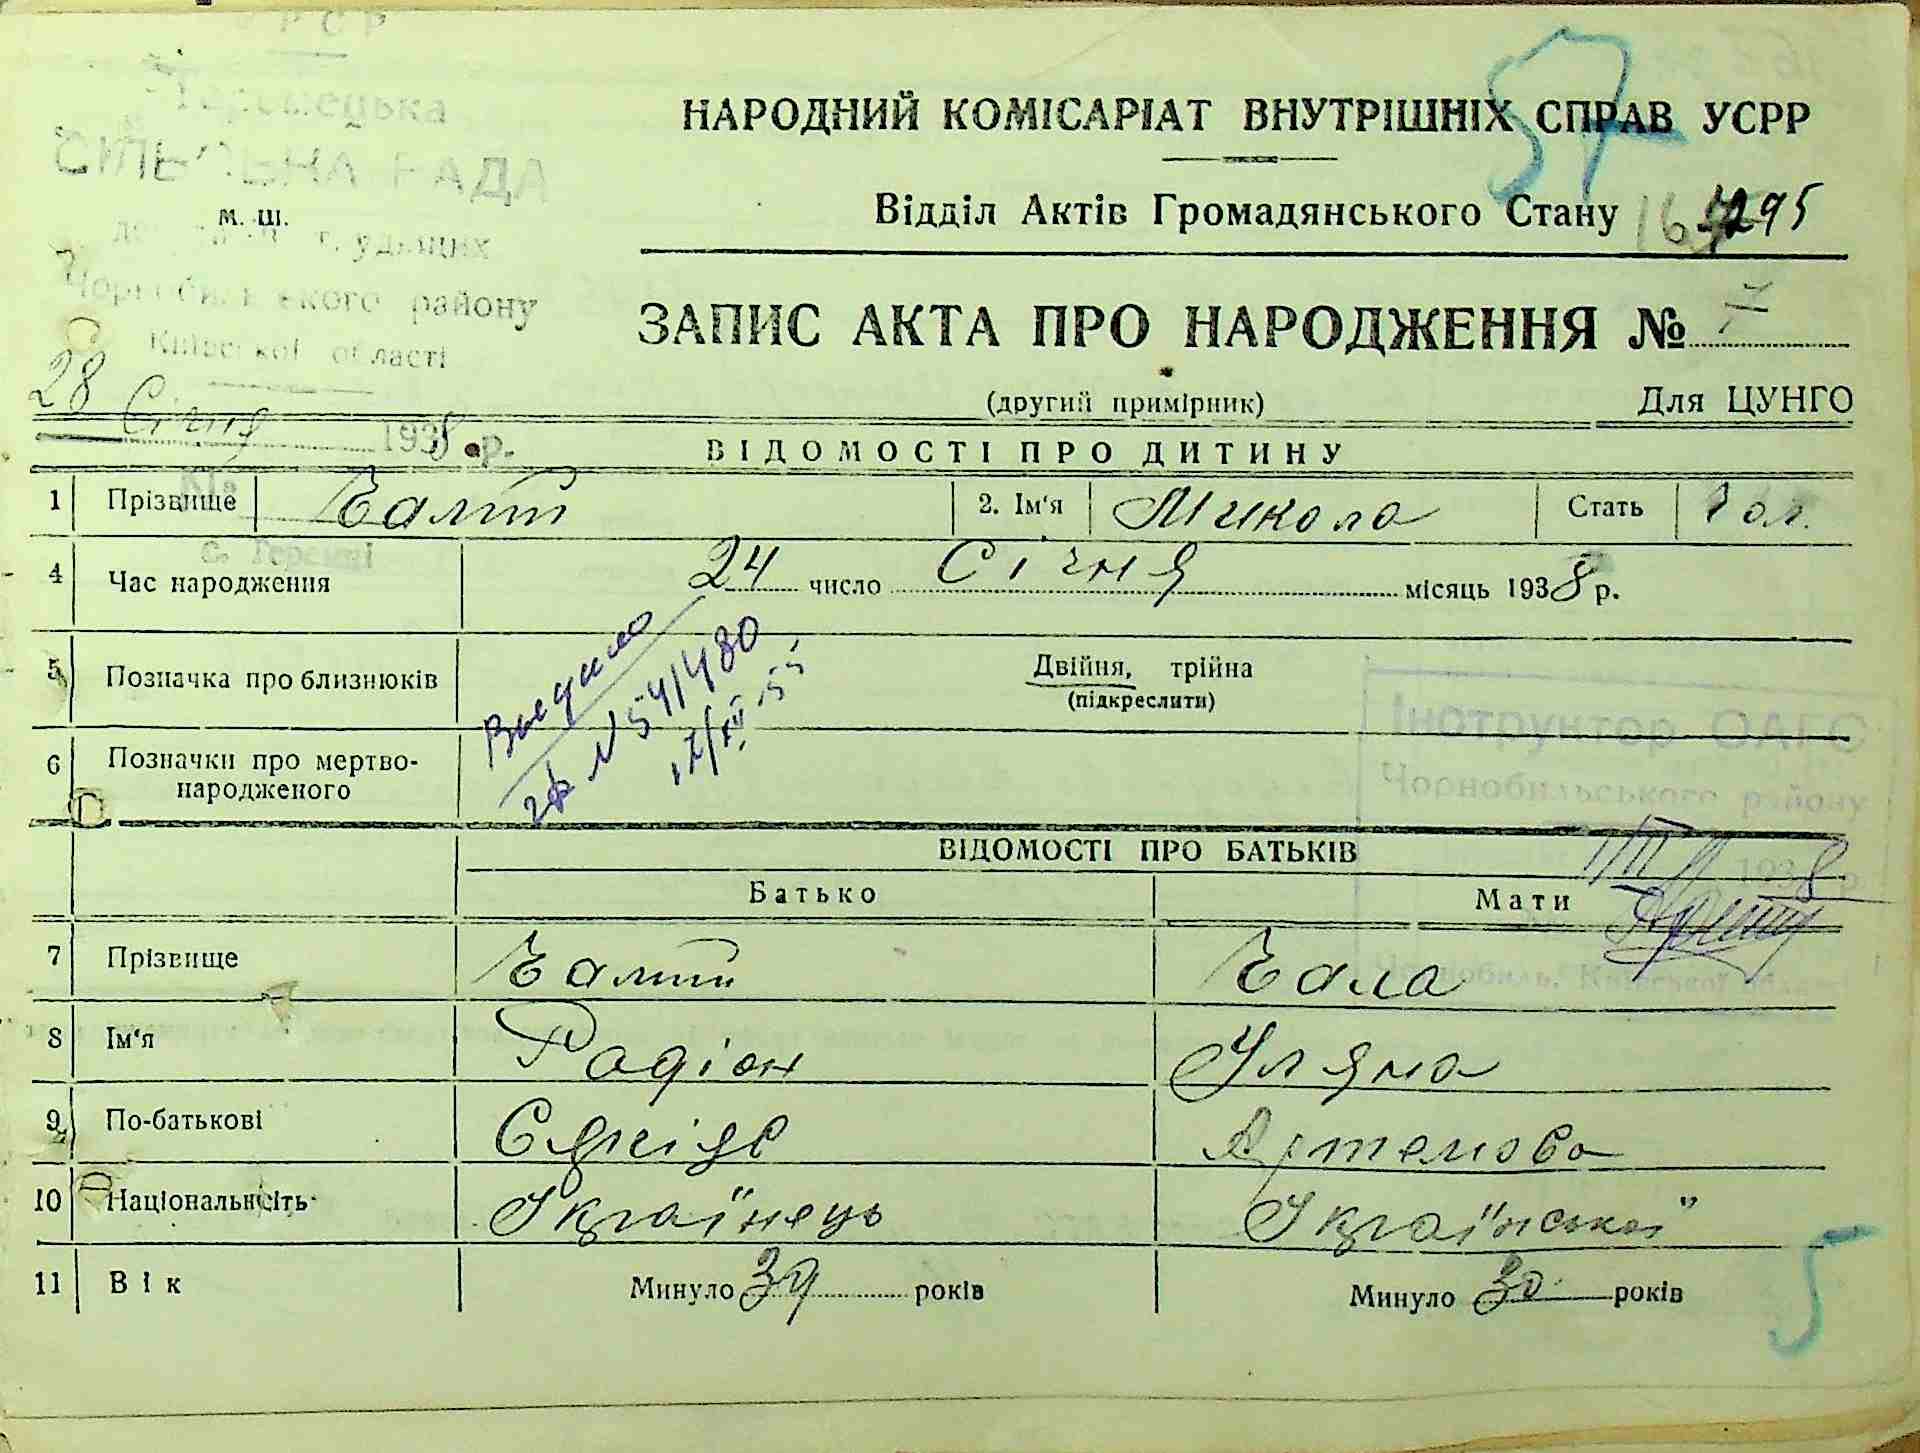 57
НАРОДНИЙ КОМІСАРІАТ ВНУТРІШНІХ СПРАВ УСРР
Відділ Актів Громадянського Стану
295
СІЛЬСЬКА РАДА
М. Ш.
Чорнобильського району
Київської області
ЗАПИС АКТА ПРО НАРОДЖЕННЯ №
(другий примірник) Для ЦУНГО
28 Січня 1938 р.
ВІДОМОСТІ ПРО ДИТИНУ
1 Прізвище 2. Ім'я Микола Стать Чол.
с. Теремці
4 Час народження 24 число Січня місяць 1938 р.
5 Позначка про близнюків Двійня, трійна
(підкреслити)
6 Позначки про мертво-
народженого
№ 54/480
Інструктор ОАГС
Чорнобильського району
1938 р.
Чорнобиль, Київської області
ВІДОМОСТІ ПРО БАТЬКІВ
Батько Мати
7 Прізвище
8 Ім'я Радіон Уляна
9 По-батькові Артемова
10 Національність Україінець Україінської
11 Вік Минуло 39 років Минуло 30 років
5